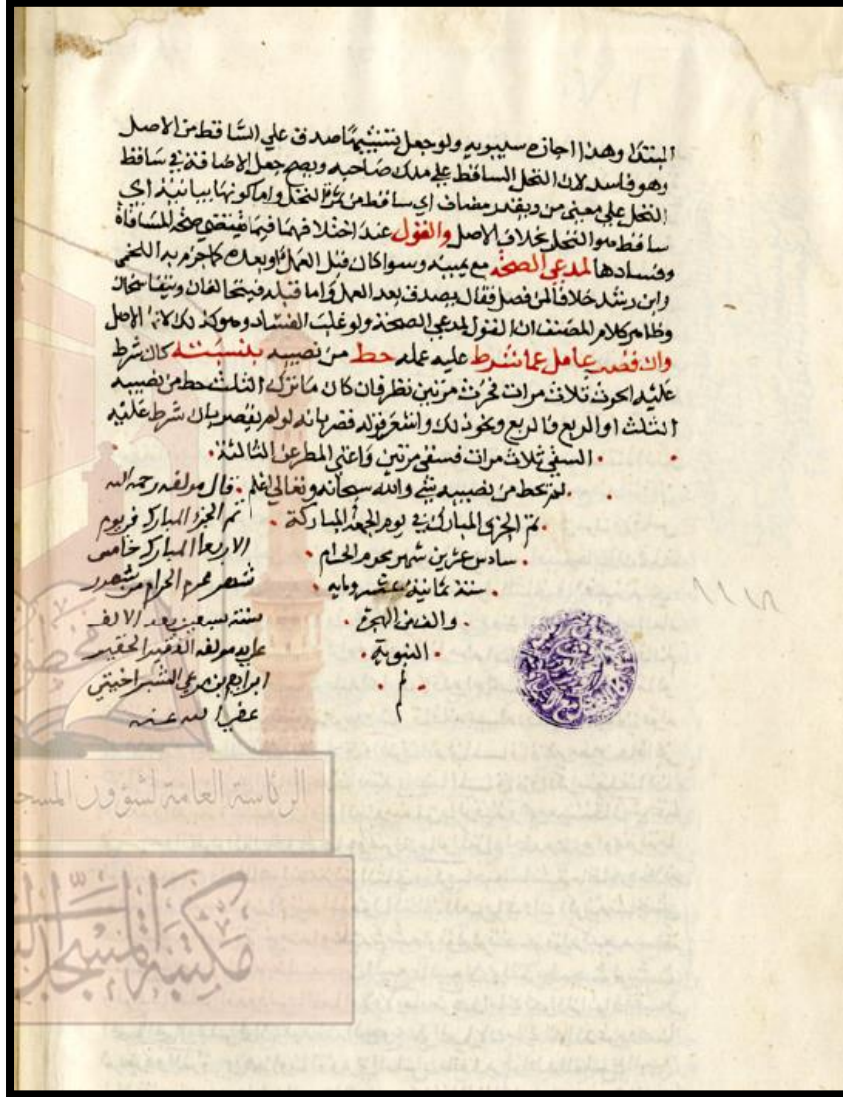 المبتدا وهذا اجازه سيبويه ولو جعل تشبيها صدق علي الساقط من الاصل
وهو فاسد لان النخل الساقط علي ملك صاحبه ويصح جعل الاضافة في ساقط
النخل علي معني من ويقدر مضاف اي ساقط من النخل واما كونها بيانية اي
ساقط هو النخل بخلاف الاصل والقول عند اختلافهما فيما يقتضي صحة المساقاة
وفسادها لمدعي الصحة مع يمينه وسوا كان قبل العمل او بعده كما جزم به اللخمي
وابن رشد خلافا لمن فصل فقال يصدق بعد العمل واما قبله فيتحالفان ويتفاسخان
وظاهر كلام المصنف ان القول لمدعي الصحة ولو غلب الفساد وهو كذلك لانه الاصل
وان قصر عامل عما شرط عليه عمله حط من نصيبه بنسبته كان شرط
عليه الحرث ثلاث مرات فحرث مرتين نظر فان كان ما ترك الثلث حط من نصيبه
الثلث او الربع فالربع ونحو ذلك واشعر قوله قصر بانه لو لم يقصر بان شرط عليه
السقي ثلاث مرات فسقي مرتين واغني المطر عن الثالثة
لم يحط من نصيبه شي والله سبحانه وتعالي اعلم قال مولفه رحمه الله
تم الجزء المبارك في يوم الجمعة المباركة
تم الجزء المبارك في يوم
سادس عشرين شهر محرم الحرام
الاربعا المبارك خامس
سنة ثمانية عشر ومايه
شهر محرم الحرام من شهور
والف من الهجرة
سنة سبعين بعد الالف
النبوية
علي يد مولفه الفقير الحقير
م
ابراهيم بن مرعي الشبراخيتي
عفي الله عنه
١١١٨
الرئاسة العامة لشؤون المسجد
مكتبة المسجد